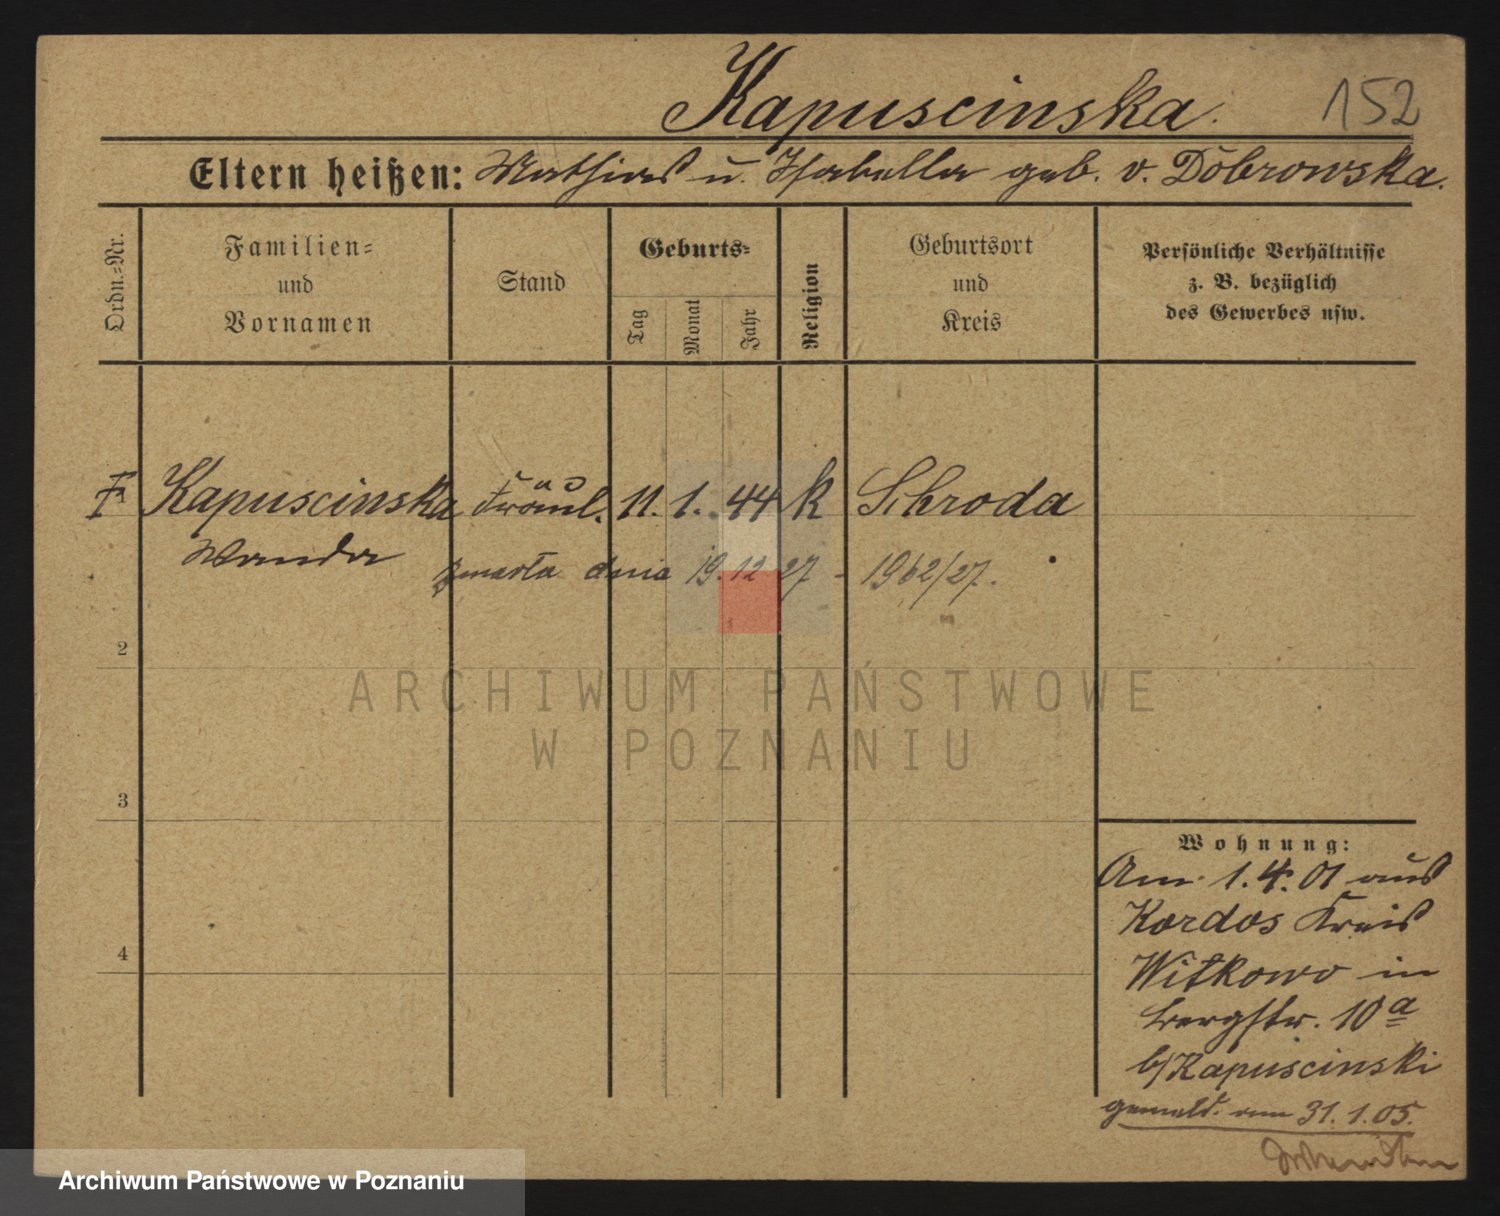 Kapuscinska. 152
Eltern heißen: Mathias u. Isabella geb. v. Dobrowska.
Ordn.=Nr.
Familien=
und
Vornamen
Stand
Geburts=
Tag
Monat
Jahr
Religion
Geburtsort
und
Kreis
Persönliche Verhältnisse
z. B. bezüglich
des Gewerbes usw.
Kapuscinska Fräul. 11. 1. 44 k Schroda
Wanda
zmarła dnia 19.12 27 - 1962/27.
2
ARCHIWUM PAŃSTWOWE
W POZNANIU
3
4
Wohnung:
Am 1.4.01 aus
Kordos Kreis
Witkowo in
Bergstr. 10 a
b/Kapuscinski
gemeld. am 31.1.05.
Archiwum Państwowe w Poznaniu